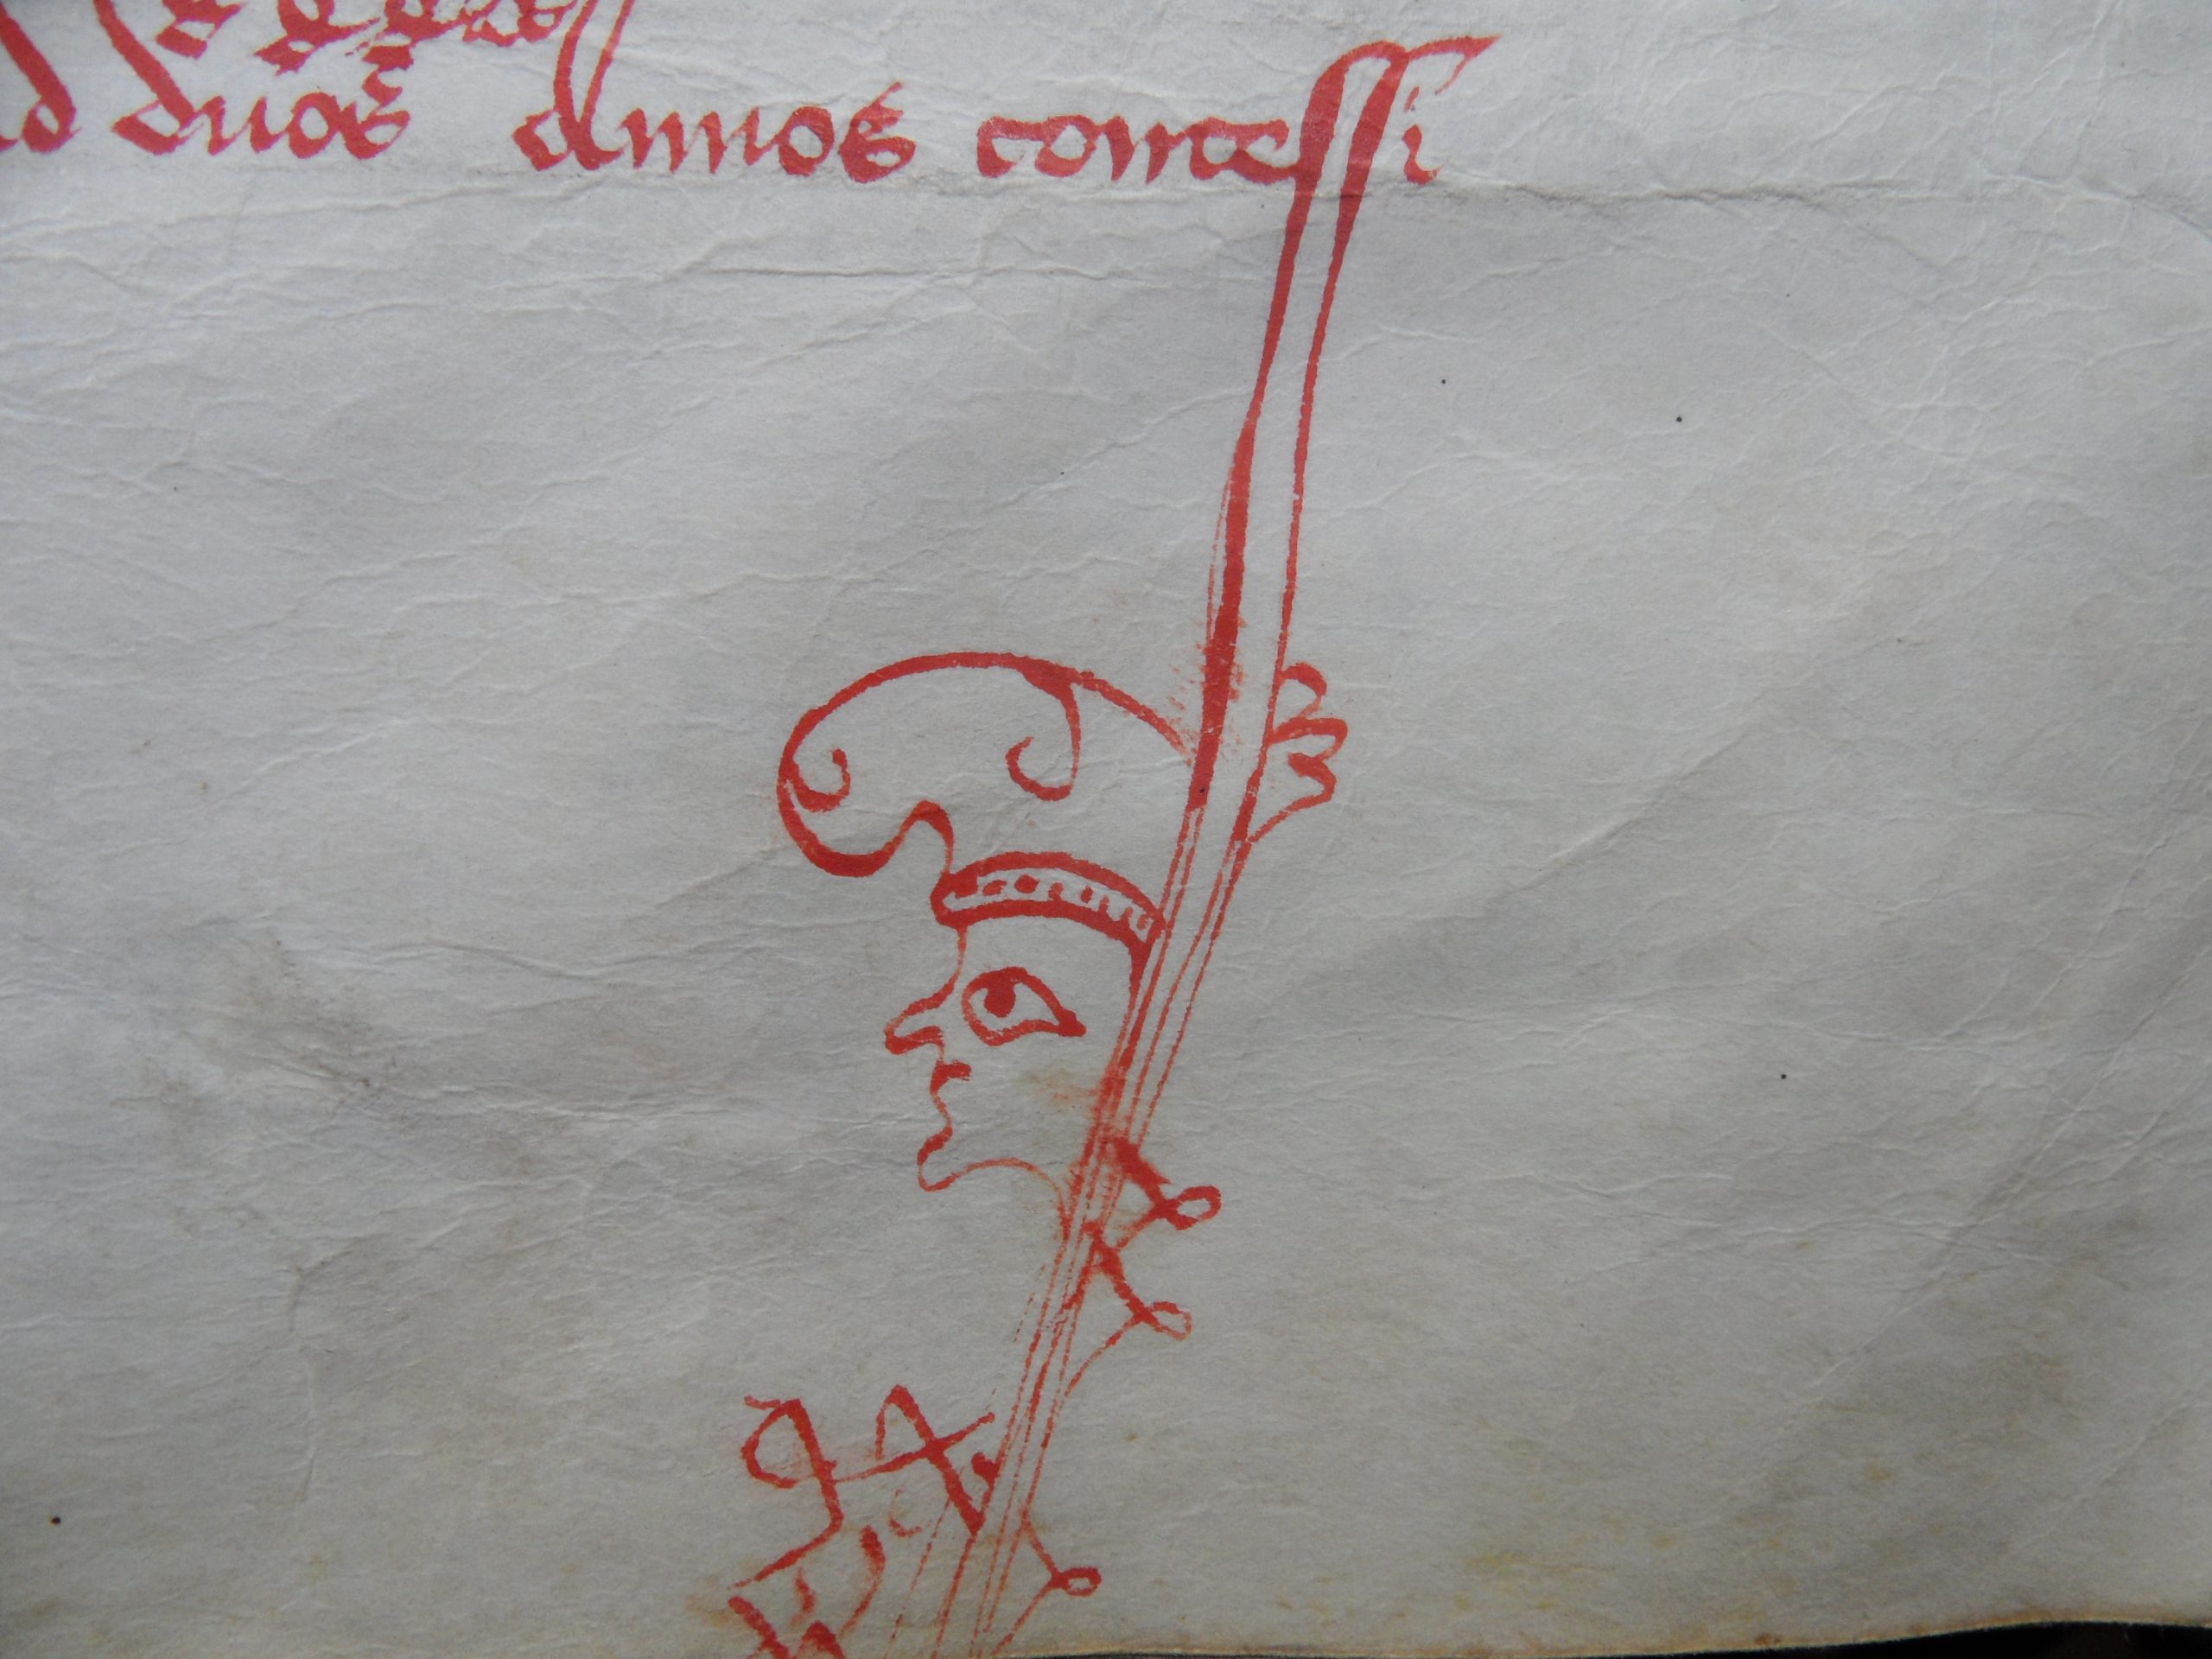 ad duos annos concessi